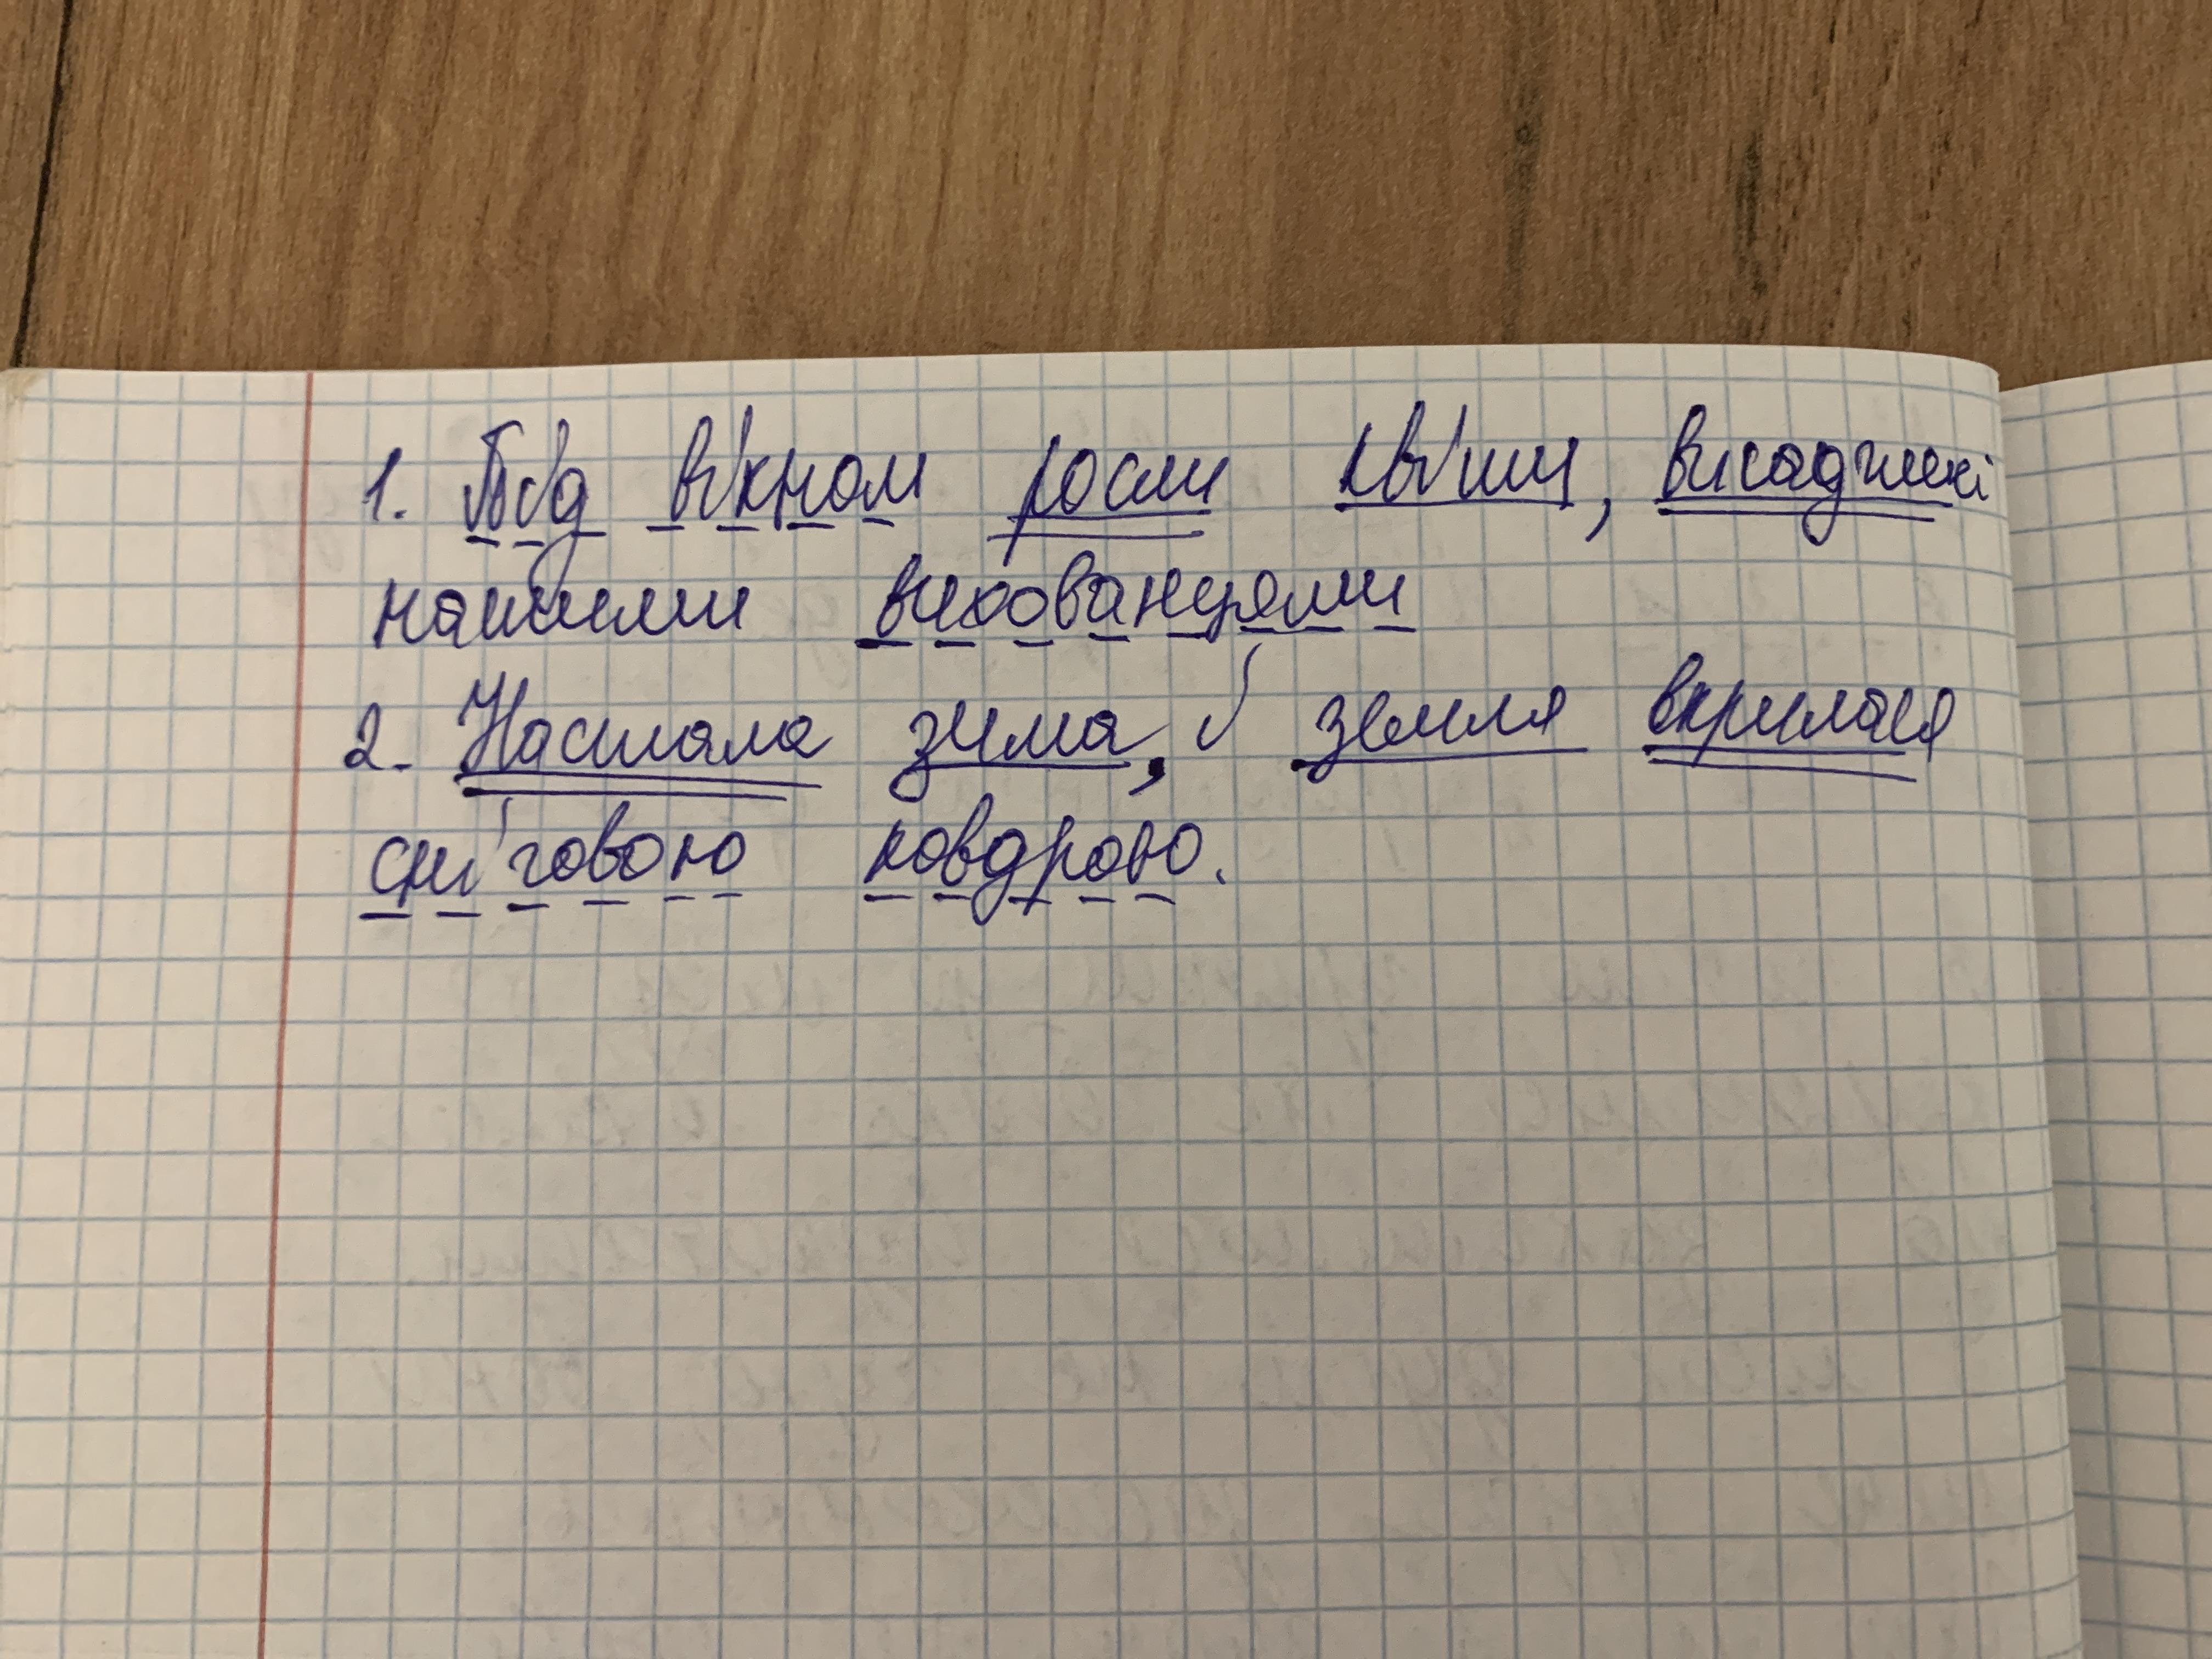 1. Під вікном росли квіти, висаджені
нашими вихованцями
2. Настала зима, і земля вкрилася
сніговою ковдрою.